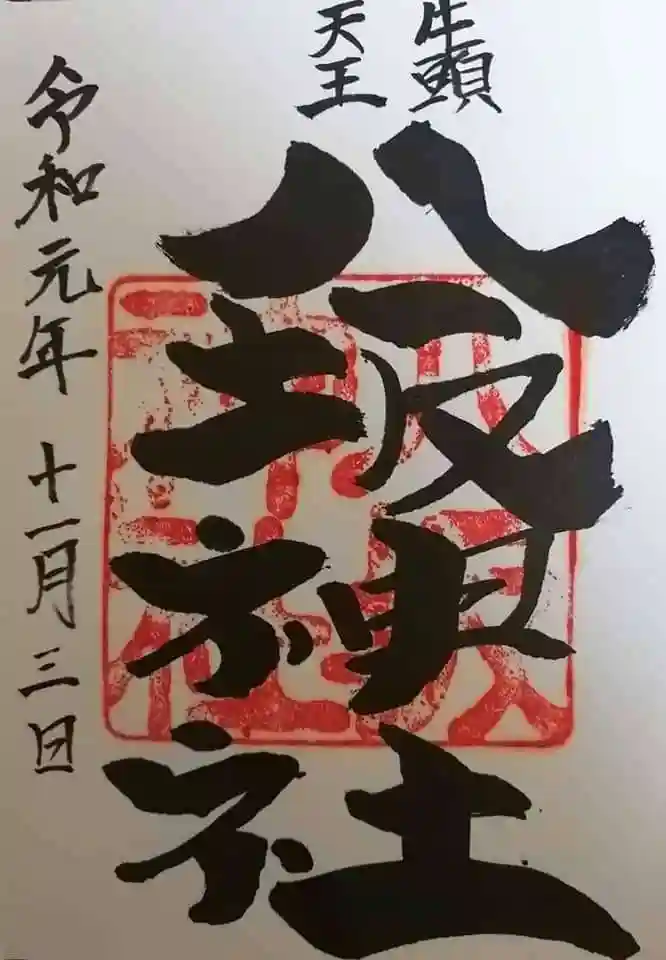 牛頭
天王
八坂神社
令和元年 十一月三日